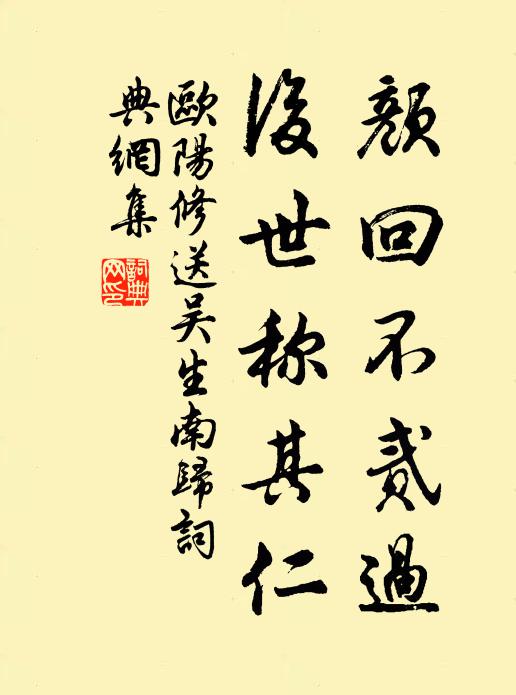 顏回不貳過
後世称其仁
歐陽修送吴生南歸詞
典網集
詞典
网印